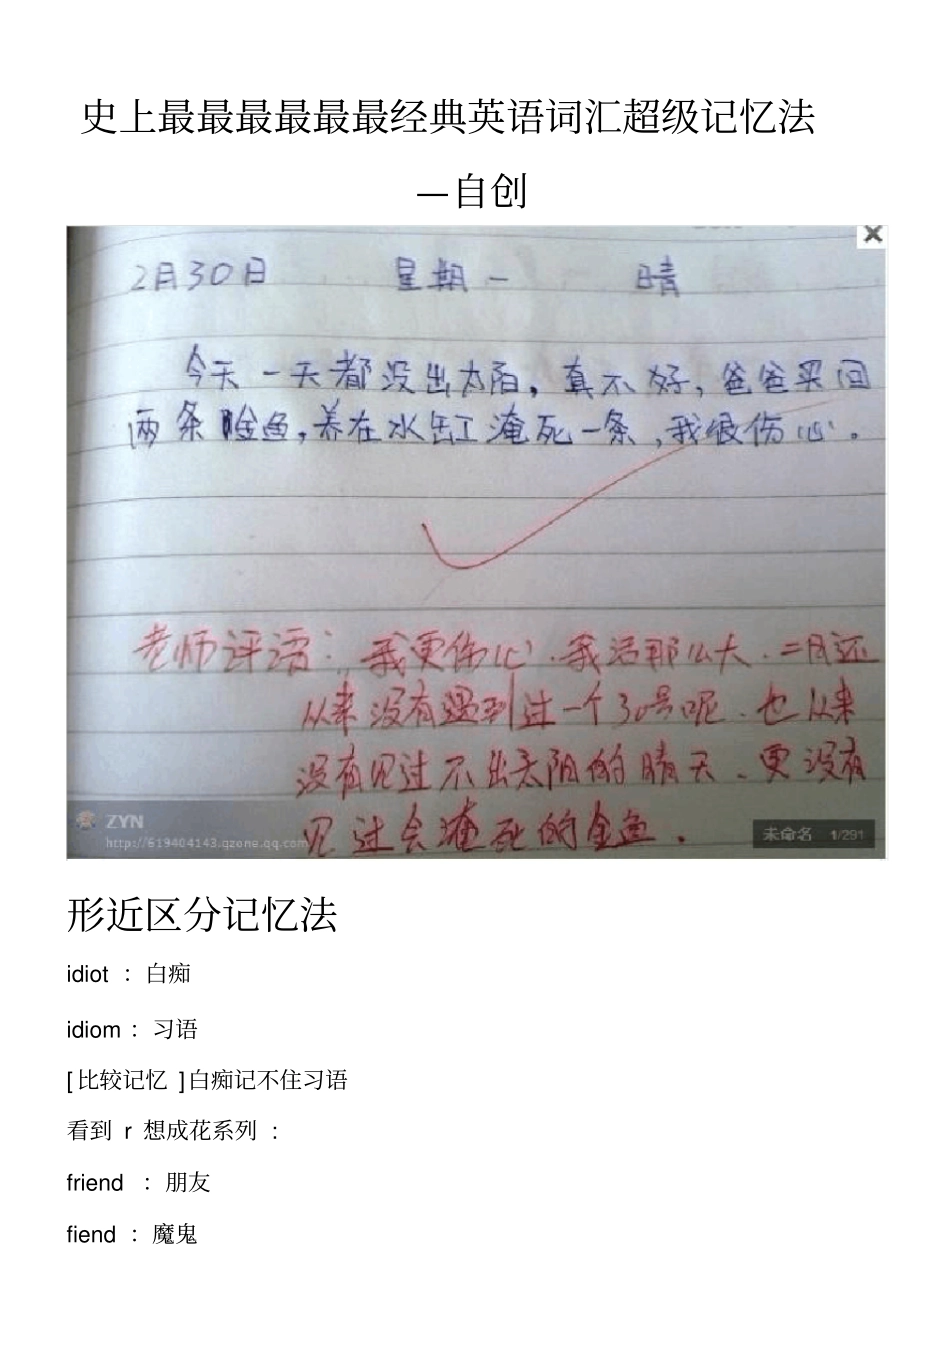 史上最最最最最最经典英语词汇超级记忆法
—自创
2月30日 星期一 晴
今天一天都没出太阳，真不好，爸爸买回
两条金鱼，养在水缸淹死一条，我很伤心。
老师评语：我更伤心.我活那么大.二月还
从来没有遇到过一个30号呢.也从来
没有见过不出太阳的晴天、更没有
见过会淹死的金鱼.
ZYN
http://619404143.qzone.qq.com
未命名 1/291
形近区分记忆法
idiot ：白痴
idiom：习语
[比较记忆 ]白痴记不住习语
看到 r 想成花系列：
friend ：朋友
fiend ：魔鬼